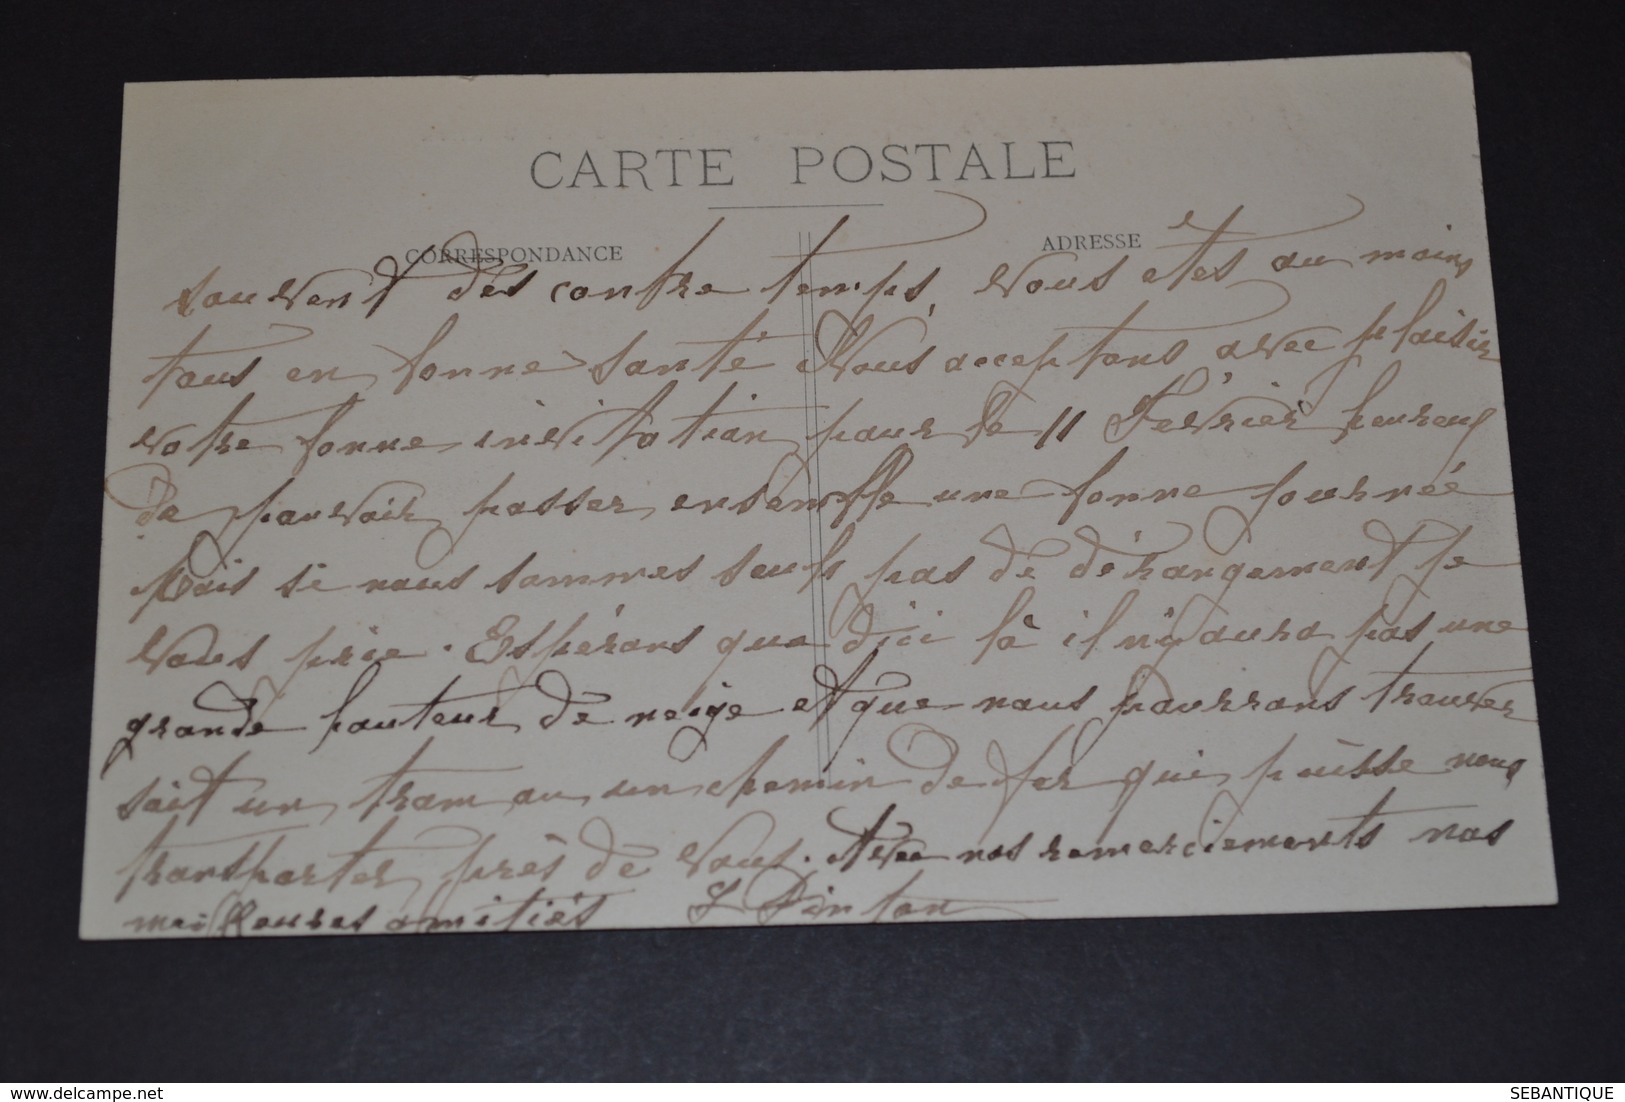 CARTE POSTALE
CORRESPONDANCE
ADRESSE
souvent des contre temps, Vous etes au moins
tous en bonne santé Nous acceptons avec plaisir
votre bonne invitation pour le 11 Février heureux
de pouvoir passer ensemble une bonne journée
Mais si nous sommes seuls pas de dérangement je
vous prie. Espérons que d'ici là il n'y aura pas une
grande hauteur de neige et que nous pourrons trouver
soit un tram ou un chemin de fer qui puisse nous
transporter près de vous. Avec nos remerciements nos
meilleures amitiés
delcampe.net
SEBANTIQUE